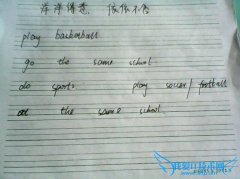 洋洋得意 依依不舍
play basketball
go the same school
do sports play soccer/football
at the same school